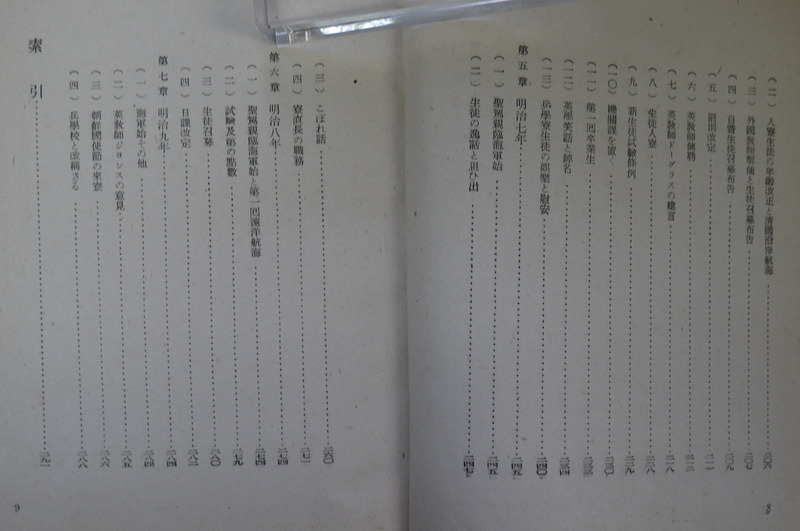 (二) 入寮生徒の年齢改正と清國沿岸航海……二〇六
(三) 外國教師解傭と生徒召募布告……二〇七
(四) 自費生徒召募布告……二〇九
(五) 則改定……二一一
(六) 英教師傭聘……二一三
(七) 英教師ドーグラスの建言……二一八
(八) 生徒入寮……二二八
(九) 新生徒試驗條例……二二九
(一〇) 機關課を置く……二三〇
(一一) 第一回卒業生……二三三
(一二) 英學笑話と綽名……二三四
(一三) 兵學寮生徒の娯樂と慰安……二四〇
第五章 明治七年……二四五
(一) 聖駕親臨海軍始……二四五
(二) 生徒の逸話と思ひ出……二四七
8
(三) こぼれ話……二六〇
(四) 寮直長の職務……二七一
第六章 明治八年……二七四
(一) 聖駕親臨海軍始と第一回遠洋航海……二七四
(二) 試驗及第の點數……二七九
(三) 生徒召募……二八〇
(四) 日課改定……二八三
第七章 明治九年……二八四
(一) 海軍始その他……二八四
(二) 英教師ジョンスの意見……二八五
(三) 朝鮮國使節の來寮……二八六
(四) 兵學校と改稱さる……二八八
索引……二九一
9